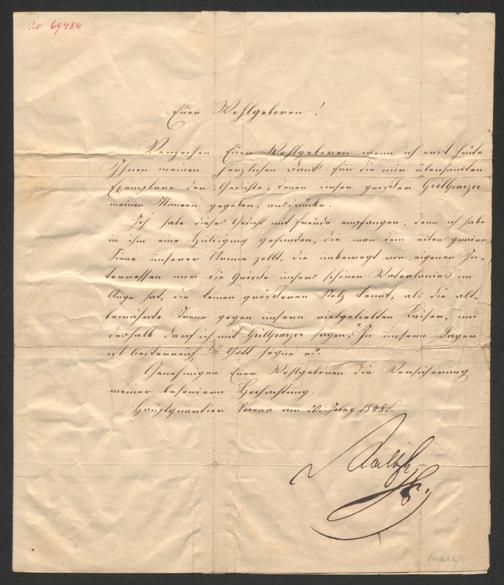 No 69484
Euer Wohlgeboren!
Verzeihen Euer Wohlgeboren wenn ich erst heute
Ihnen meinen herzlichen Dank für die mir übersandten
Exemplare des Gedichts, denen unser großer Grillparzer
meinen Namen gegeben, ausdrücke.
Ich habe dieses Gedicht mit Freude empfangen, denn ich habe
in ihm eine Huldigung gefunden, die man dem alten
Sinne unserer Armee zollt, die unbewegt von eigenen In-
teressen nur die Größe unsers schönen Vaterlandes im
Auge hat, die keinen größeren Stolz kennt, als die alt-
bewährte Treue gegen unsern vielgeliebten Kaiser, und
deshalb darf ich mit Grillparzer sagen: "In unserm Lager
ist Oesterreich" Gott segne es.
Genehmigen Euer Wohlgeboren die Versicherung
meiner besondern Hochachtung
Hauptquartier Verona am 20. Juny 1848.